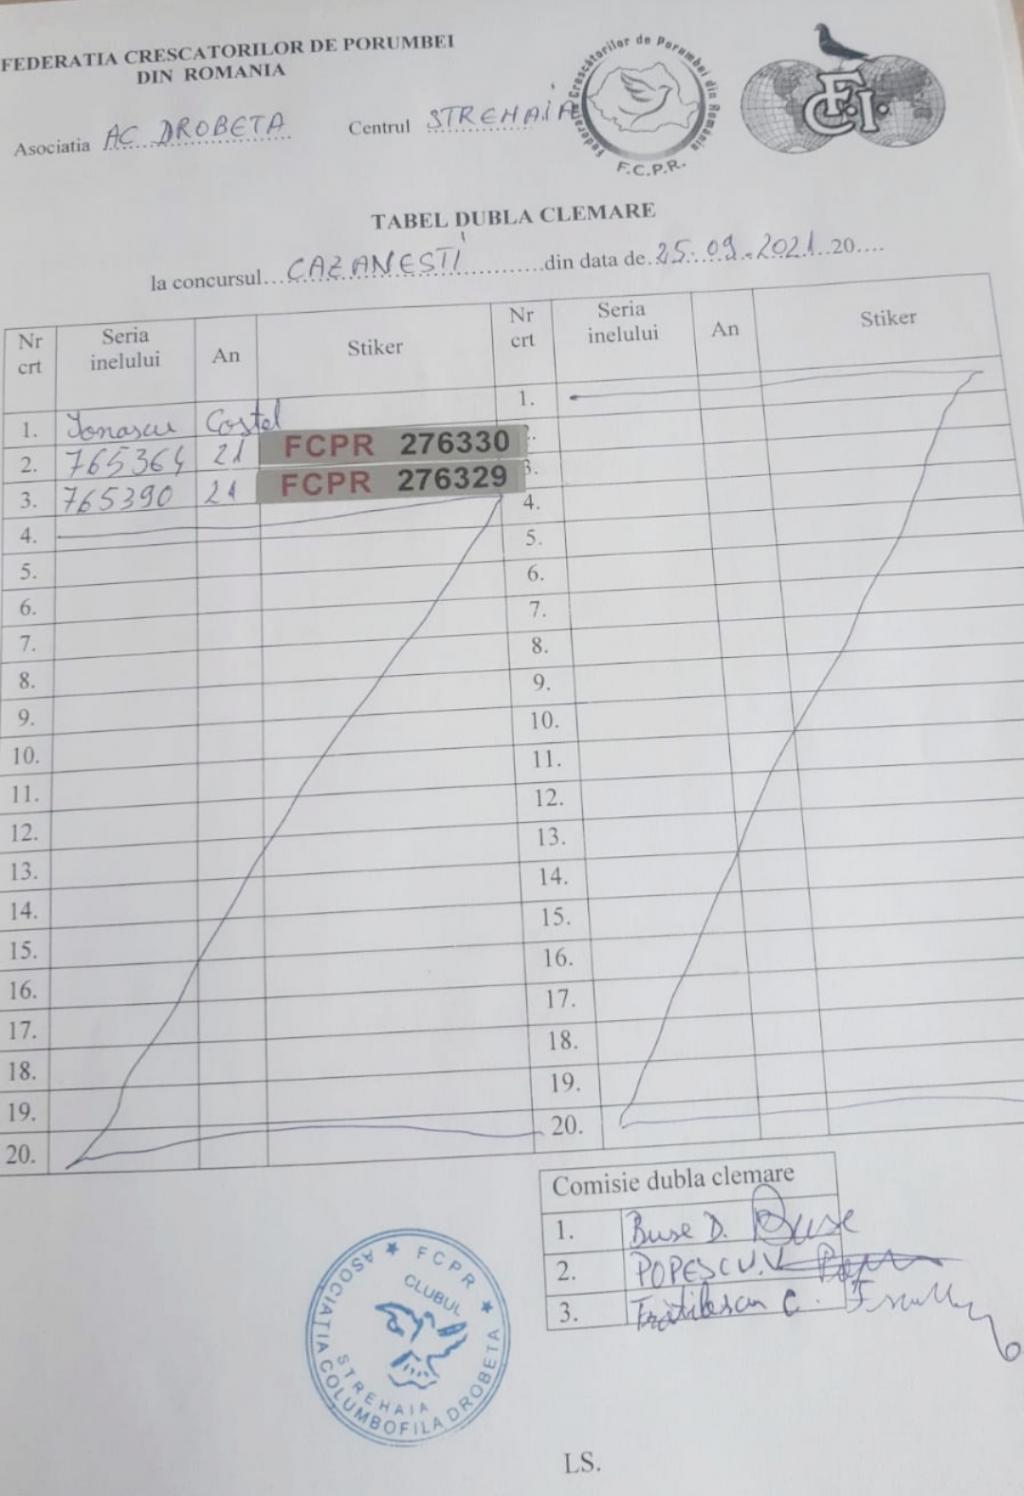 FEDERATIA CRESCATORILOR DE PORUMBEI
DIN ROMANIA
Asociatia AC DROBETA Centrul STREHAIA
Federația Crescătorilor de Porumbei din România
F.C.P.R.
F.C.I.
TABEL DUBLA CLEMARE
la concursul...CAZANESTI...din data de.25.09.2021.20....
Nr crt Seria inelului An Stiker Nr crt Seria inelului An Stiker
1. Ionascu Costel 1.
2. 765364 21 FCPR 276330 2.
3. 765390 21 FCPR 276329 3.
4. 4.
5. 5.
6. 6.
7. 7.
8. 8.
9. 9.
10. 10.
11. 11.
12. 12.
13. 13.
14. 14.
15. 15.
16. 16.
17. 17.
18. 18.
19. 19.
20. 20.
Comisie dubla clemare
1. Buse D. Buse
2. POPESCU.V.
3. Frătilescu C.
FCPR
CLUBUL
STREHAIA
ASOCIAȚIA COLUMBOFILA DROBETA
LS.